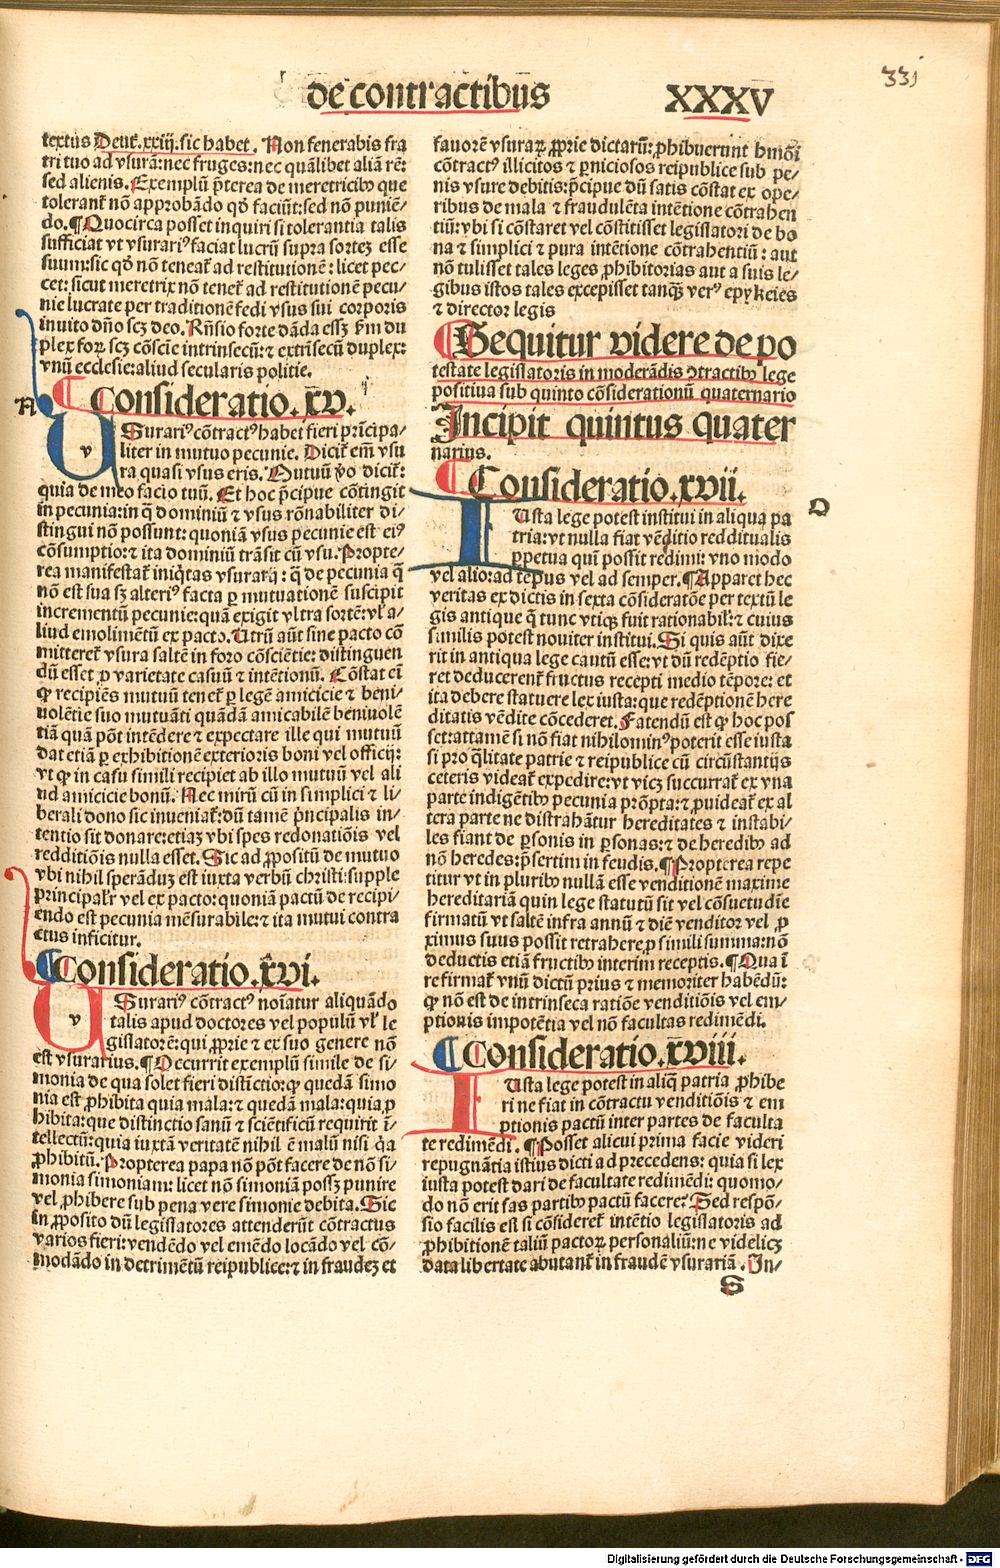 331
de contractibus XXXV
textus Deut̄. xxiij. sic habet. Non fenerabis fra
tri tuo ad vsurā: nec fruges: nec quālibet aliā rē:
sed alienis. Exemplū p̄terea de meretricibꝰ que
tolerant̄ nō approbādo qd̄ faciūt: sed nō punie/
do. ¶ Quocirca posset inquiri si tolerantia talis
sufficiat vt vsurariꝰ faciat lucrū supra sortez esse
suum: sic qd̄ nō teneat̄ ad restitutionē: licet pec/
cet: sicut meretrix nō tenet̄ ad restitutionē pecu/
nie lucrate per traditionē fedi vsus sui corporis
inuito dn̄o scz deo. Rn̄sio forte dāda essz ẜm du
plex forꝝ scz cōsciē intrinsecū: ⁊ extrīsecū duplex:
vnū ecclesie: aliud secularis politie.
¶ Consideratio. xv.
A
v Surariꝰ cōtractꝰ habet fieri prīcipa/
liter in mutuo pecunie. Dicit̄ em̄ vsu
ra quasi vsus eris. Mutuū ꝟo dicit̄:
quia de meo facio tuū. Et hoc p̄cipue cōtingit
in pecunia: in q̄ dominiū ⁊ vsus rōnabiliter di/
stingui nō possunt: quoniā vsus pecunie est eiꝰ
cōsumptio: ⁊ ita dominiū trāsit cū vsu. Propte/
rea manifestat̄ iniq̄tas vsurarij: q̄ de pecunia q̄
nō est sua sꝫ alteriꝰ facta ꝑ mutuationē suscipit
incrementū pecunie: quā exigit vltra sortē: vl̄ a/
liud emolimētū ex pacto. Utrū aūt sine pacto cō
mitteret̄ vsura saltē in foro cōsciētie: distinguen
dū esset ꝓ varietate casuū ⁊ intētionū. Cōstat eī
ꝙ recipiēs mutuū tenet̄ ꝑ legē amicicie ⁊ beni/
uolētie suo mutuāti quādā amicabilē beniuolē
tiā quā pōt intēdere ⁊ expectare ille qui mutuū
dat etiā ꝑ exhibitionē exterioris boni vel officij:
vt ꝙ in casu simili recipiet ab illo mutuū vel ali
ud amicicie bonū. Nec mirū cū in simplici ⁊ li/
berali dono sic inueniat̄: dū tamē p̄ncipalis in/
tentio sit donare: etiaz vbi spes redonatiōis vel
redditiōis nulla esset. Sic ad ꝓpositū de mutuo
vbi nihil sperāduz est iuxta verbū christi: supple
principalr̄ vel ex pacto: quoniā pactū de recipi/
endo est pecunia mēsurabile: ⁊ ita mutui contra
ctus inficitur.
¶ Consideratio. xvi.
v Surariꝰ cōtractꝰ noīatur aliquādo
talis apud doctores vel populū vl̄ le
gislatorē: qui ꝓprie ⁊ ex suo genere nō
est vsurarius. ¶ Occurrit exemplū simile de si/
monia de qua solet fieri distīctio: ꝙ quedā simo
nia est ꝓhibita quia mala: ⁊ quedā mala: quia ꝓ
hibita: que distinctio sanū ⁊ sciētificū requirit ī/
tellectū: quia iuxtā veritatē nihil ē malū nisi q̄a
ꝓhibitū. Propterea papa nō pōt facere de nō si/
monia simoniam: licet nō simoniā possz punire
vel ꝓhibere sub pena vere simonie debita. Sic
in ꝓposito dū legislatores attenderūt cōtractus
varios fieri: vendēdo vel emēdo locādo vel cō/
modādo in detrimētū reipublice: ⁊ in fraudez et
fauorē vsuraꝝ ꝓprie dictarū: ꝓhibuerunt hmōi
cōtractꝰ illicitos ⁊ ꝑniciosos reipublice sub pe/
nis vsure debitis: p̄cipue dū satis cōstat ex ope/
ribus de mala ⁊ fraudulēta intētione cōtrahen
tiū: vbi si cōstaret vel cōstitisset legislatori de bo
na ⁊ simplici ⁊ pura intētione cōtrahentiū: aut
nō tulisset tales leges ꝓhibitorias aut a suis le/
gibus istos tales excepisset tanqꝫ verꝰ epykeies
⁊ director legis
¶ Sequitur videre de po
testate legislatoris in moderādis ꝯtractibꝰ lege
positiua sub quinto cōsiderationū quaternario
Incipit quintus quater
narius.
¶ Consideratio. xvii.
D
I Usta lege potest institui in aliqua pa
tria: vt nulla fiat vēditio reddituālis
ꝑpetua quī possit redimi: vno modo
vel alio: ad tēpus vel ad semper. ¶ Apparet hec
veritas ex dictis in sexta cōsideratōe per textū le
gis antique q̄ tunc vtiqꝫ fuit rationabil̄: ⁊ cuius
similis potest nouiter institui. Si quis aūt dixe
rit in antiqua lege cautū esse: vt dū redēptio fie/
ret deducerent̄ fructus recepti medio tēpore: et
ita debere statuere lex iusta: que redēptionē here
ditatis vēdite cōcederet. Fatendū est ꝙ hoc pos
set: attamē si nō fiat nihilominꝰ poterit esse iusta
si pro q̄litate patrie ⁊ reipublice cū circūstantijs
ceteris videat̄ expedire: vt vicꝫ succurrat̄ ex vna
parte indigētibꝰ pecunia prōpta: ⁊ ꝓuideat̄ ex al
tera parte ne distrahātur hereditates ⁊ instabi/
les fiant de ꝑsonis in ꝑsonas: ⁊ de heredibꝰ ad
nō heredes: p̄sertim in feudis. ¶ Propterea repe
titur vt in pluribꝰ nullā esse venditionē maxime
hereditariā quin lege statutū sit vel cōsuetudīe
firmatū vt saltē infra annū ⁊ diē venditor vel ꝓ
ximus suus possit retrahere ꝓ simili summa: nō
deductis etiā fructibꝰ interim receptis. ¶ Qua ī
re firmat̄ vnū dictū prius ⁊ memoriter habēdū:
ꝙ nō est de intrinseca ratiōe venditiōis vel em/
ptionis impotētia vel nō facultas redimēdi.
¶ Consideratio. xviii.
I Usta lege potest in aliq̄ patria ꝓhibe
ri ne fiat in cōtractu venditiōis ⁊ em
ptionis pactū inter partes de faculta
te redimēdi. ¶ Posset alicui prima facie videri
repugnātia istius dicti ad precedens: quia si lex
iusta potest dari de facultate redimēdi: quomo/
do nō erit fas partibꝰ pactū facere? Sed respō/
sio facilis est si cōsideret̄ intētio legislatoris ad
ꝓhibitionē taliū pactoꝝ personaliū: ne videlicꝫ
data libertate abutant̄ in fraudē vsurariā. In/
S
Digitalisierung gefördert durch die Deutsche Forschungsgemeinschaft - DFG